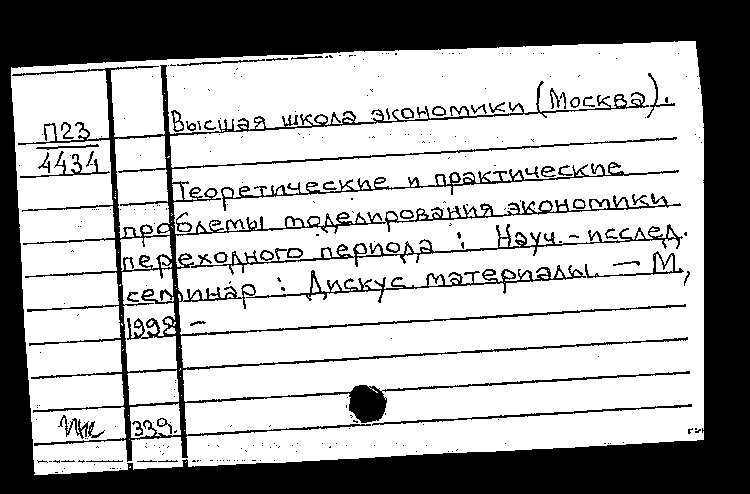 П23
4434
Высшая школа экономики (Москва).
Теоретические и практические
проблемы моделирования экономики
переходного периода : Науч.-исслед.
семинар : Дискус. материалы. — М.,
1998 –
339.